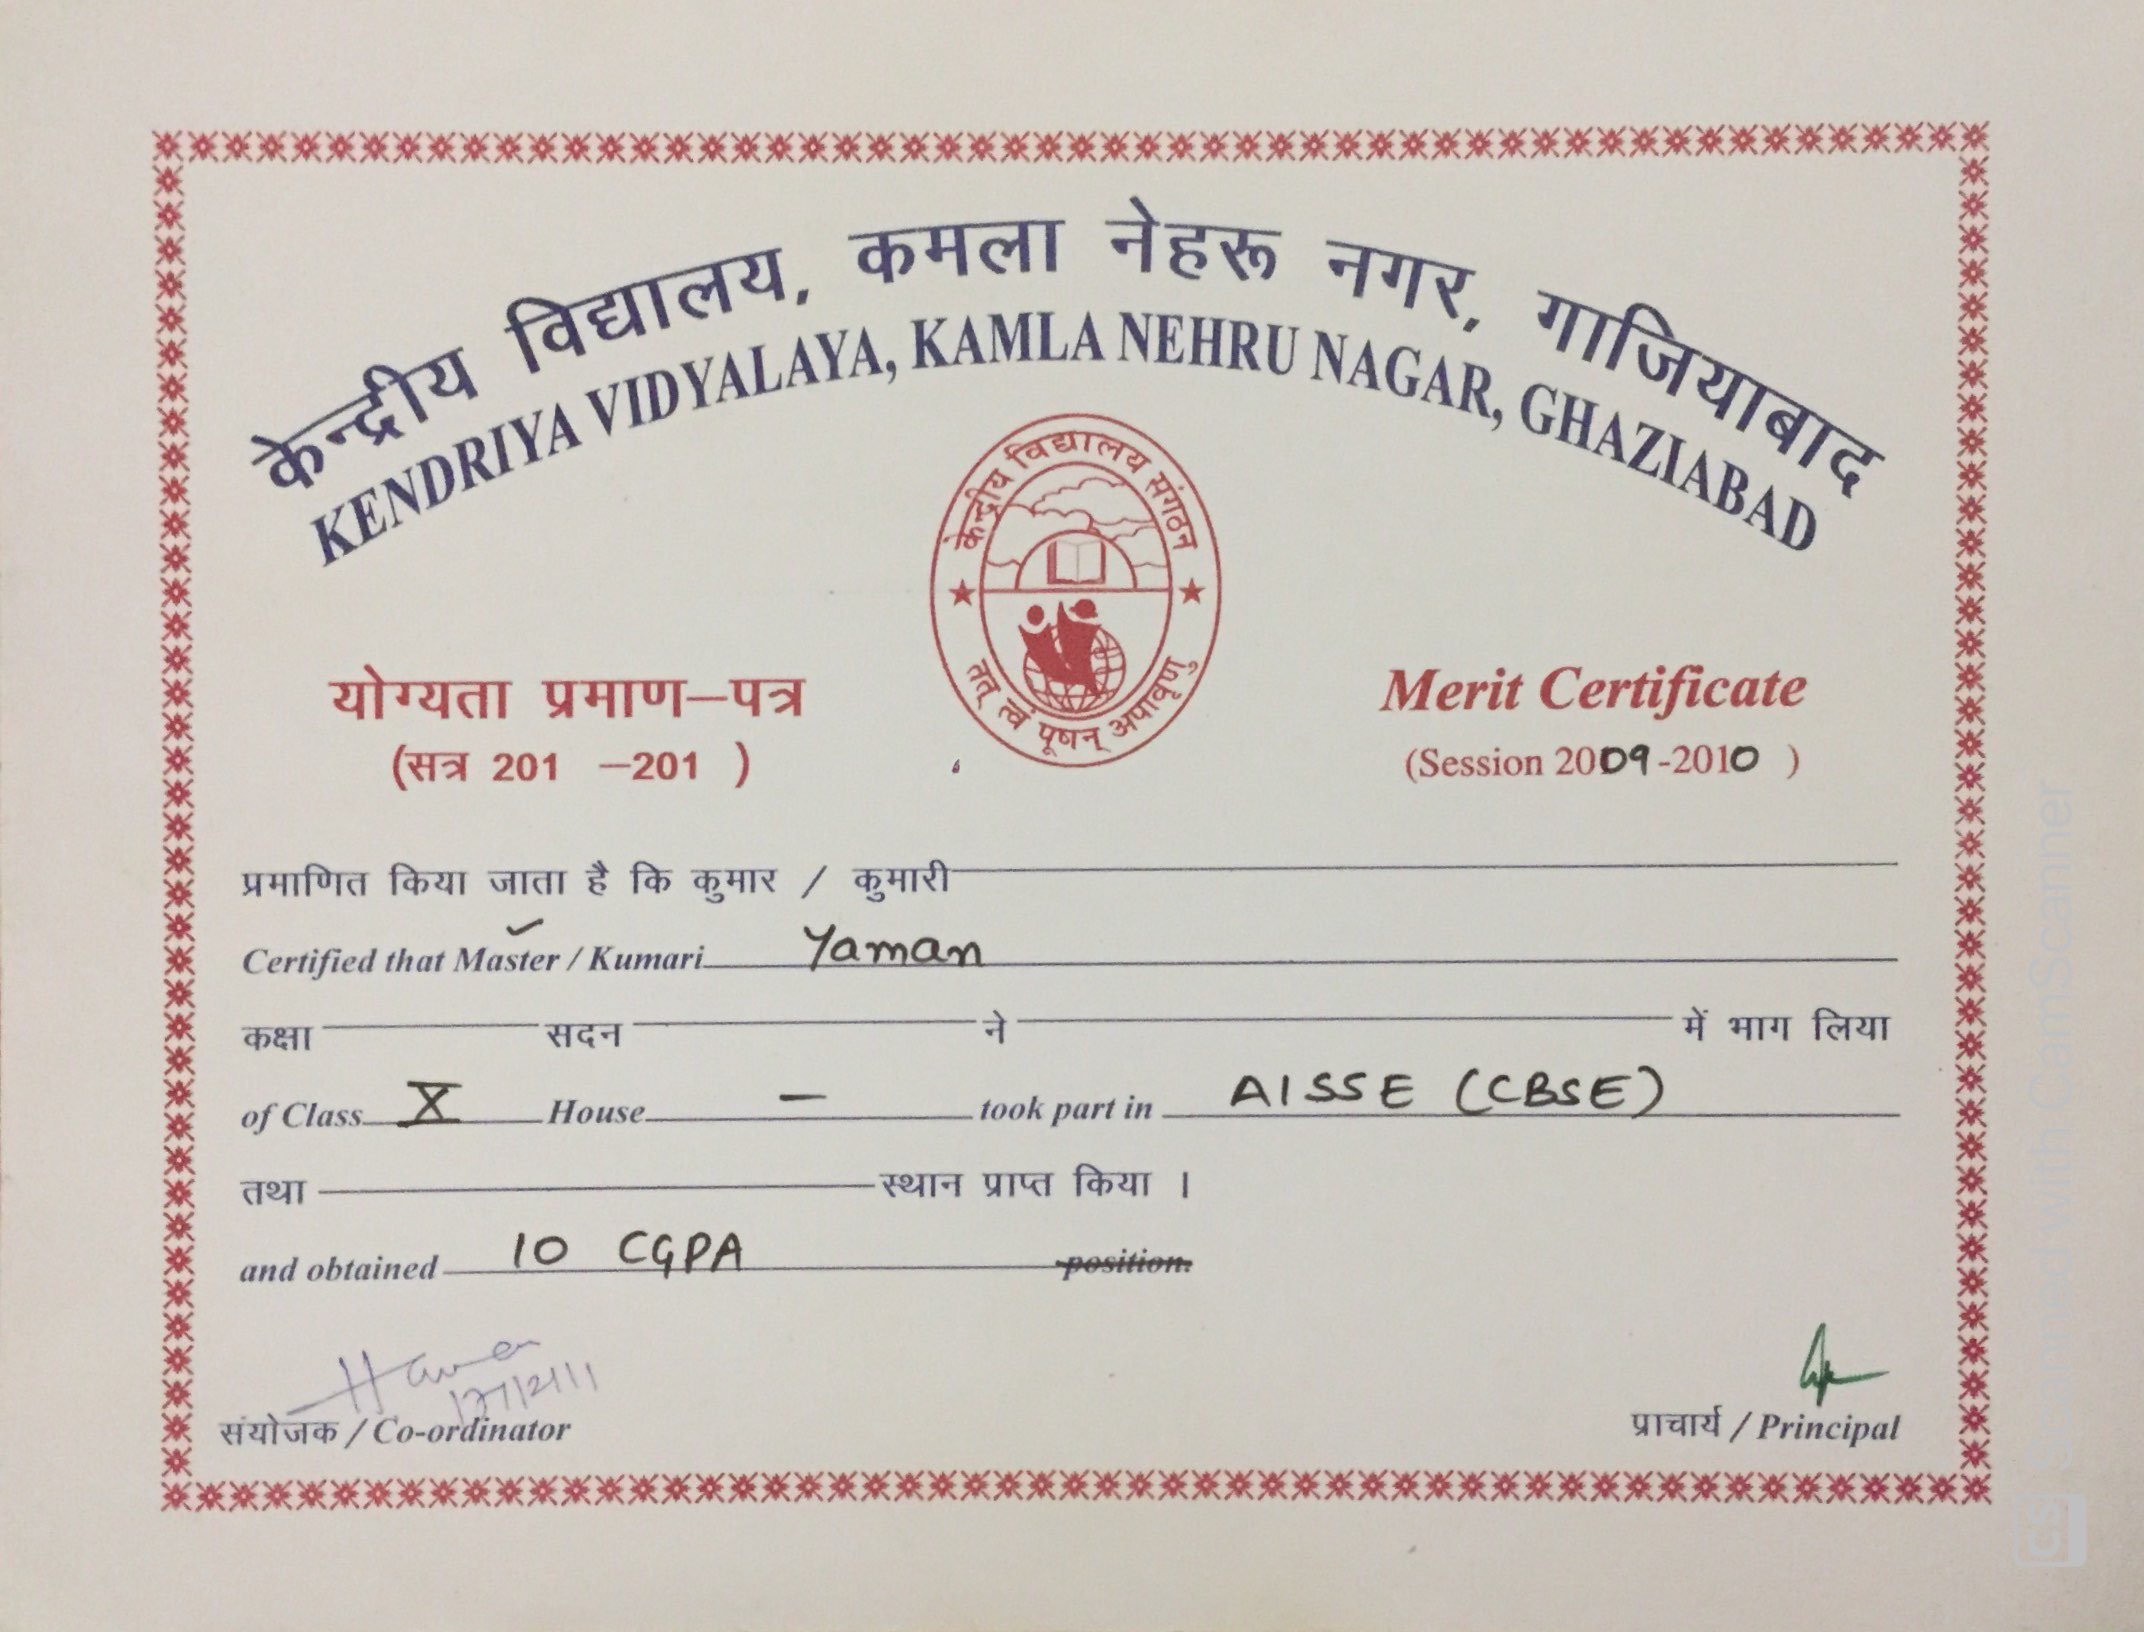 केन्द्रीय विद्यालय, कमला नेहरू नगर, गाजियाबाद
KENDRIYA VIDYALAYA, KAMLA NEHRU NAGAR, GHAZIABAD
केन्द्रीय विद्यालय संगठन
तत् त्वं पूषन् अपावृणु
योग्यता प्रमाण–पत्र
Merit Certificate
(सत्र 201 –201 )
(Session 2009-2010 )
प्रमाणित किया जाता है कि कुमार / कुमारी
Certified that Master / Kumari Yaman
कक्षा सदन ने में भाग लिया
of Class X House – took part in AISSE (CBSE)
तथा स्थान प्राप्त किया ।
and obtained 10 CGPA position.
संयोजक / Co-ordinator
प्राचार्य / Principal
CS Scanned with CamScanner